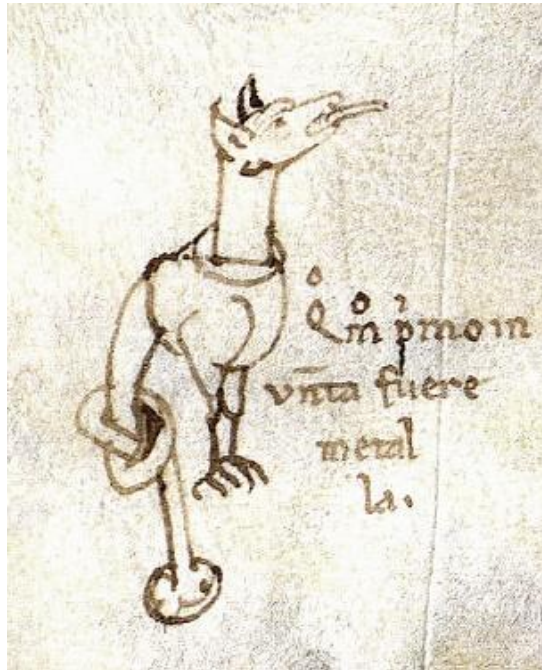 Qͦmͦ pͥmo in
vn̄ta fuere
metal
la.